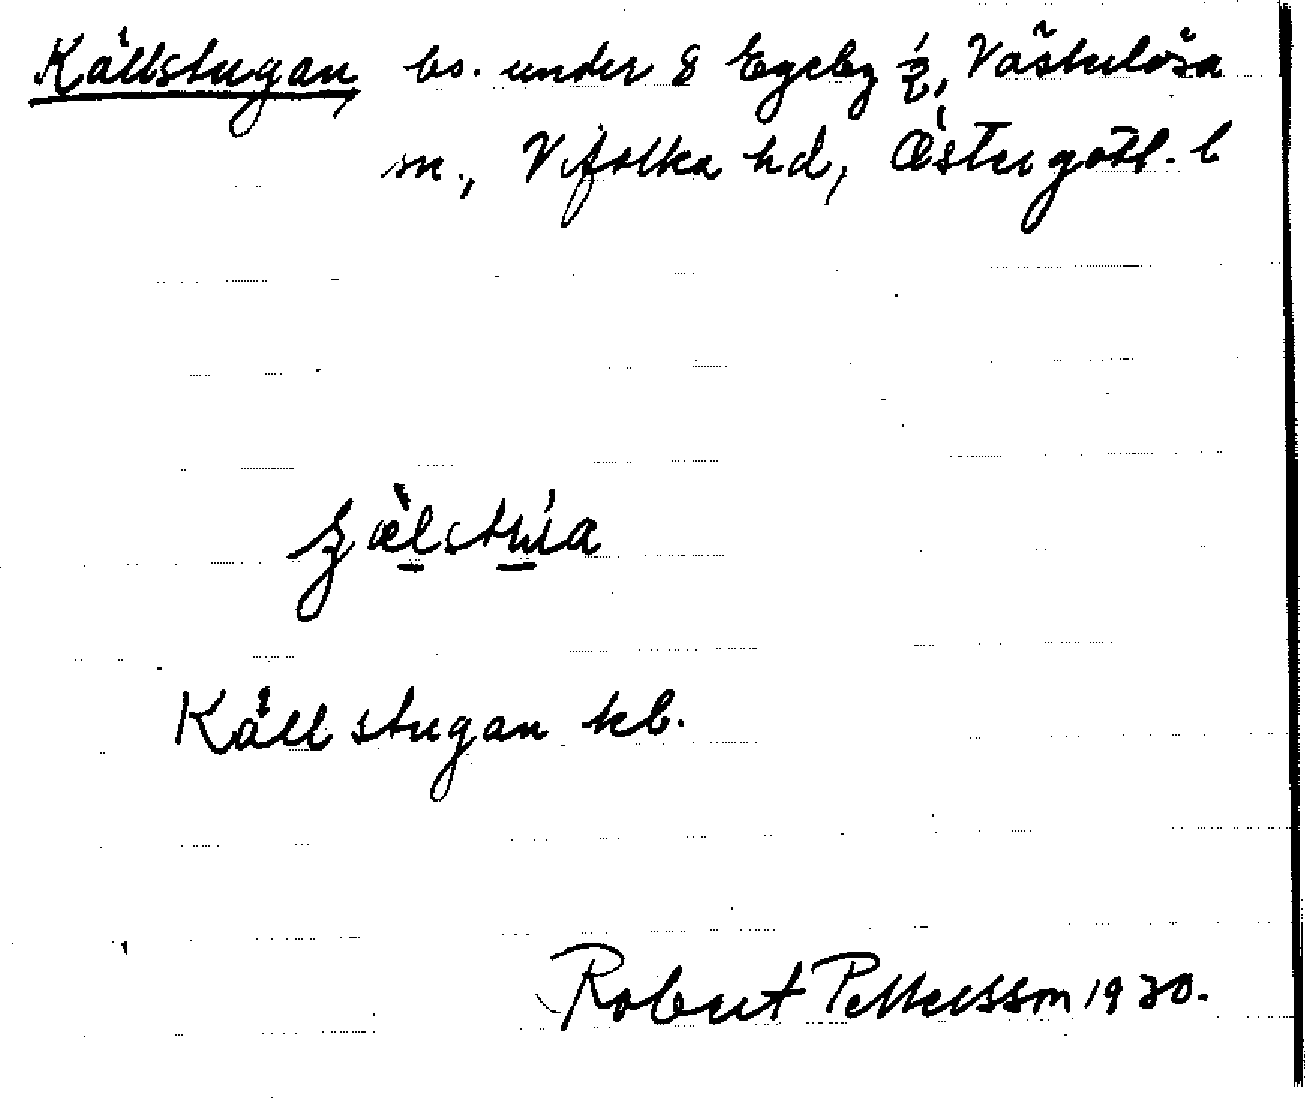 Källstugan bs. under 8 Egeby ½, Västerlösa
sn., Vifolka hd, Östergötl. l
Källstugan kb.
Robert Pettersson 1930.